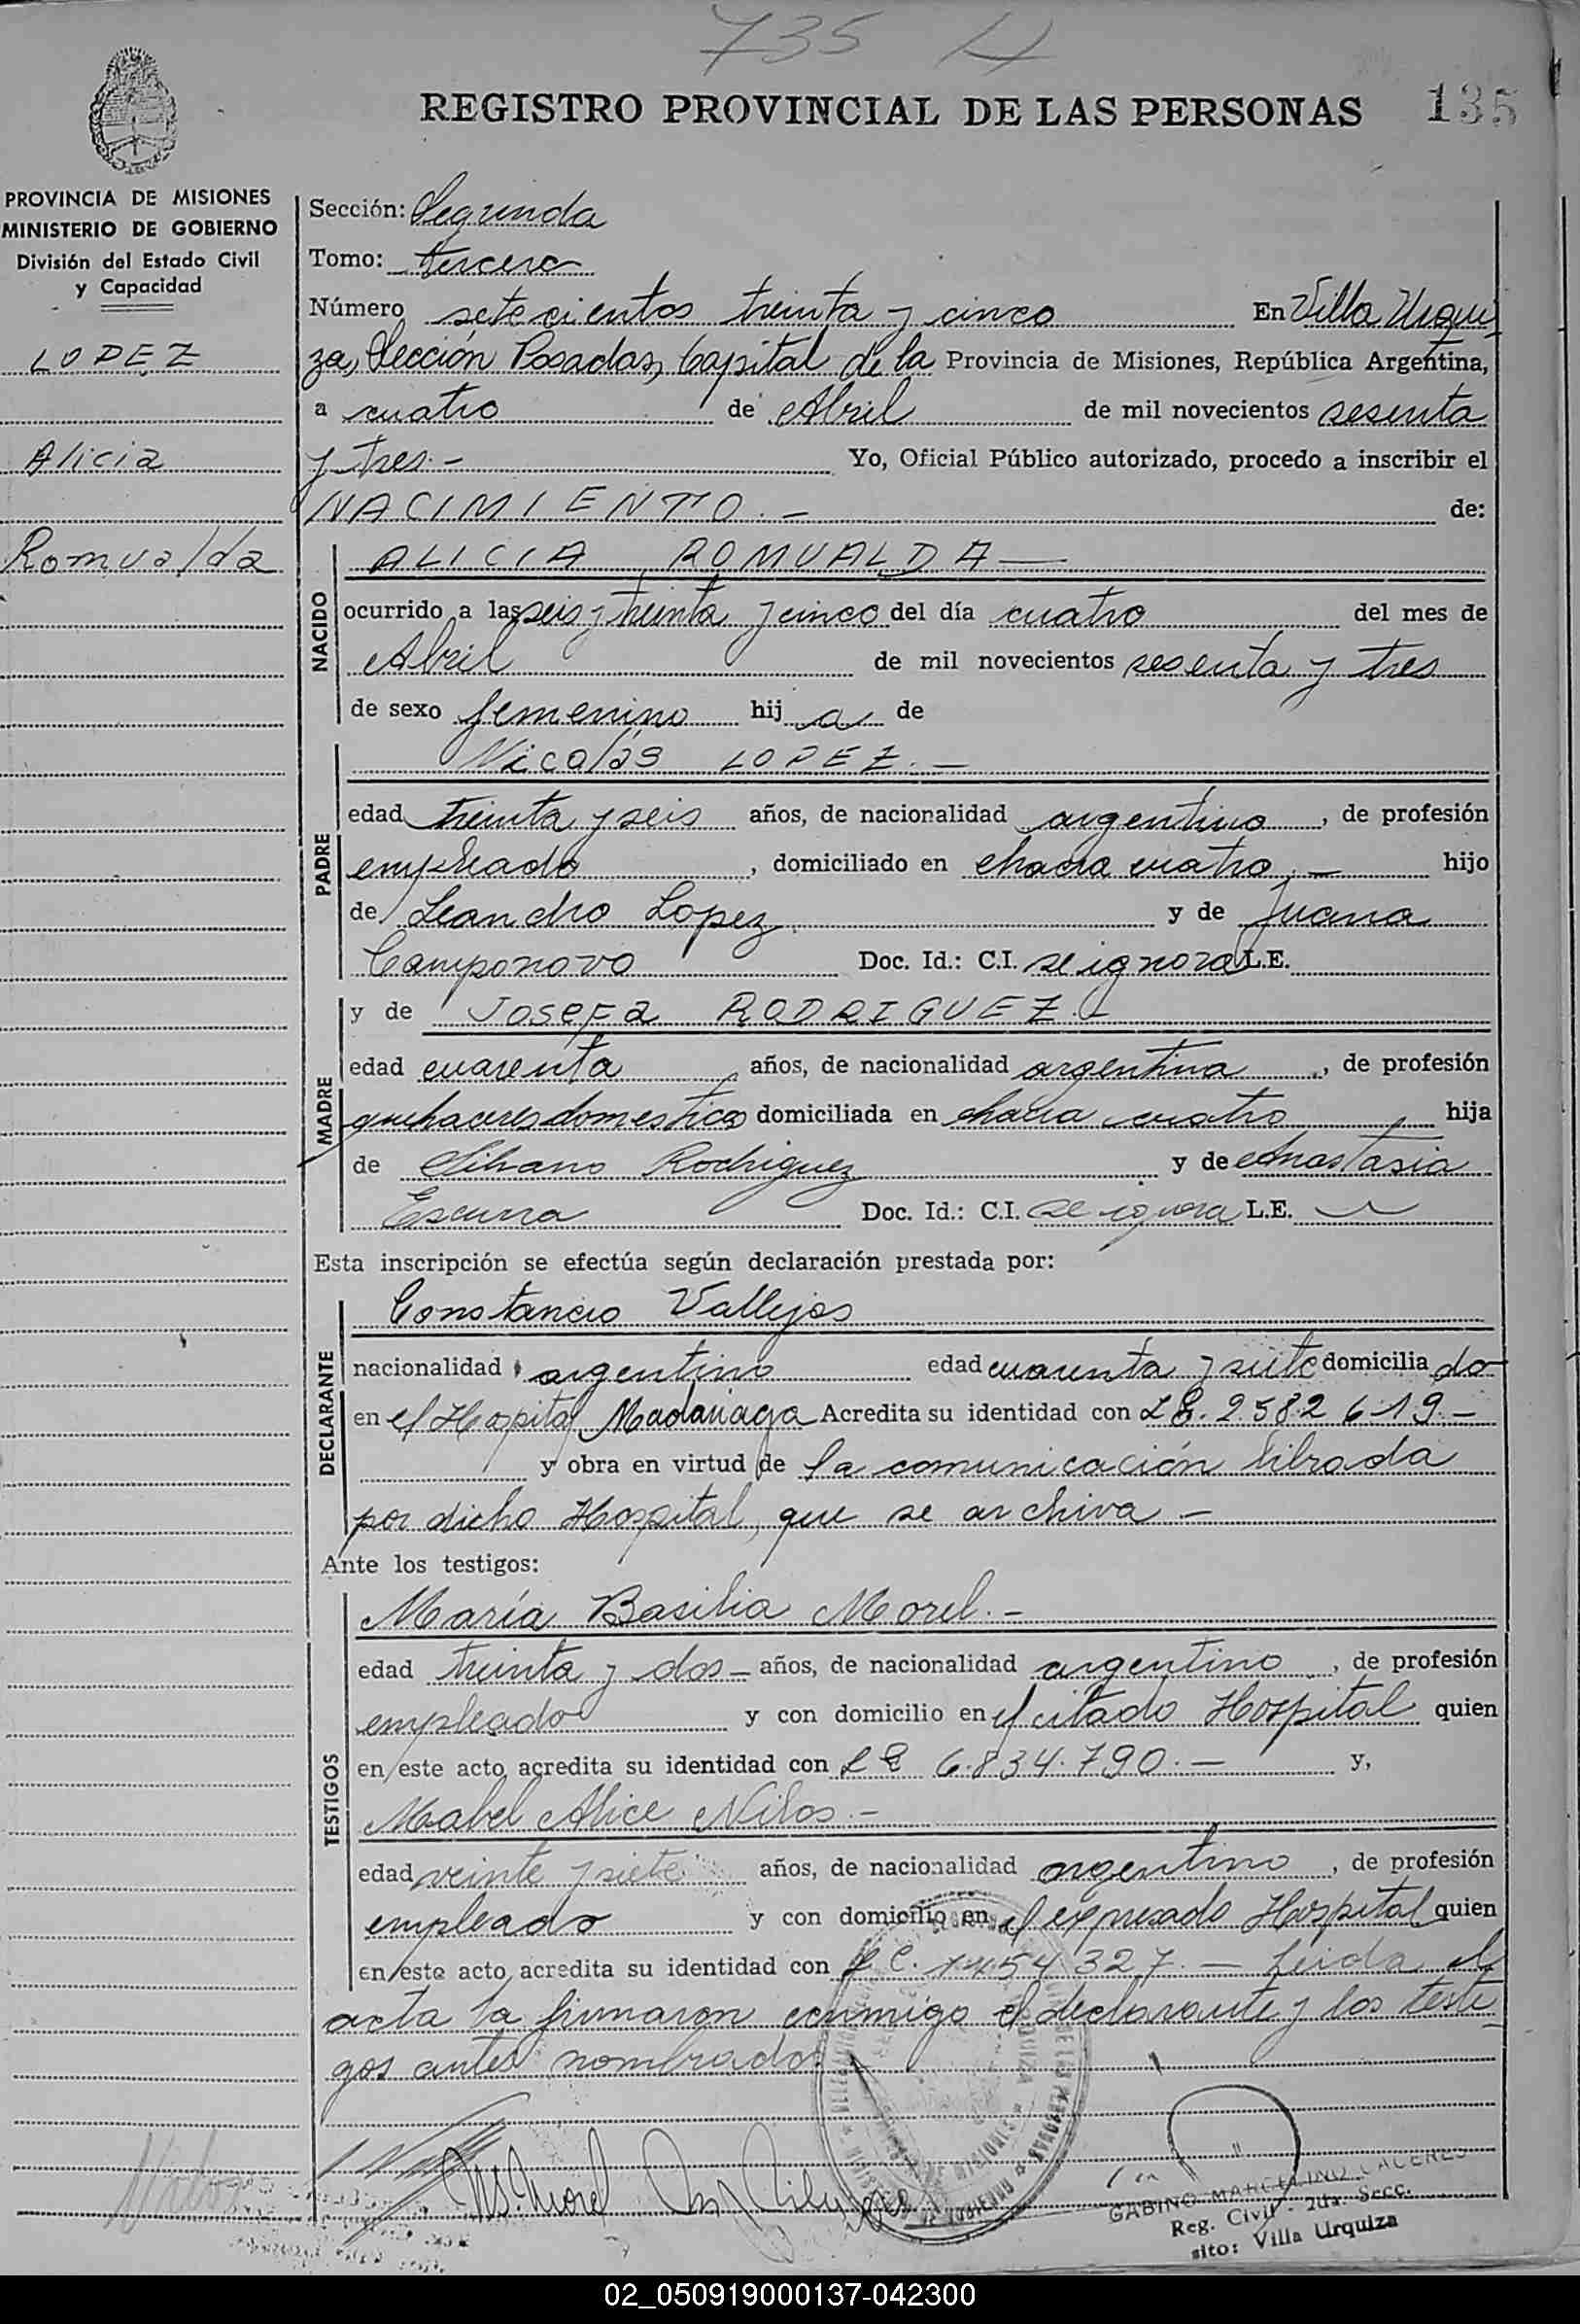 735
REGISTRO PROVINCIAL DE LAS PERSONAS 135
PROVINCIA DE MISIONES
MINISTERIO DE GOBIERNO
División del Estado Civil
y Capacidad
LOPEZ
Alicia
Romualda
Sección: Segunda
Tomo: tercero
Número setecientos treinta y cinco En Villa Urqui
za, Sección Posadas, Capital de la Provincia de Misiones, República Argentina,
a cuatro de Abril de mil novecientos sesenta
y tres.- Yo, Oficial Público autorizado, procedo a inscribir el
NACIMIENTO.- de:
NACIDO
ALICIA ROMUALDA
ocurrido a las seis y treinta y cinco del día cuatro del mes de
Abril de mil novecientos sesenta y tres
de sexo femenino hij a de
PADRE
Nicolás LOPEZ.-
edad treinta y seis años, de nacionalidad argentino, de profesión
empleado, domiciliado en chacra cuatro.- hijo
de Leandro Lopez y de Juana
Camponovo Doc. Id.: C.I. se ignora L.E.
MADRE
y de Josefa RODRIGUEZ.-
edad cuarenta años, de nacionalidad argentina, de profesión
quehaceres domesticos domiciliada en chacra cuatro hija
de Silvano Rodriguez y de Anastasia
Escurra Doc. Id.: C.I. se ignora L.E.
Esta inscripción se efectúa según declaración prestada por:
DECLARANTE
Constancio Vallejos
nacionalidad argentino edad cuarenta y siete domicilia do
en el Hospital Madariaga Acredita su identidad con LE. 2582619.-
y obra en virtud de la comunicación librada
por dicho Hospital, que se archiva -
Ante los testigos:
TESTIGOS
María Basilia Morel.-
edad treinta y dos - años, de nacionalidad argentino, de profesión
empleado y con domicilio en el citado Hospital quien
en este acto acredita su identidad con LE 6.834.790.- y,
Mabel Alice Nilos.-
edad veinte y siete años, de nacionalidad argentino, de profesión
empleado y con domicilio en el expresado Hospital quien
en este acto acredita su identidad con - Leida el
acta la firmaron conmigo el declarante y los testi
gos antes nombrados
Ms. Morel
GABINO MARCELINO CACERES
Reg. Civil - 2da. Secc.
sito: Villa Urquiza
02_050919000137-042300